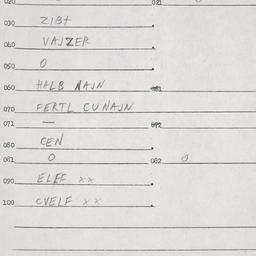 020 021
030 ZIBT
040 VAJZER
050 O
060 HALB NAJN 061
070 FERTL CUNAJN
071 — 072
080 CEN
081 O 082 O
090 ELEF xx
100 CVELF xx